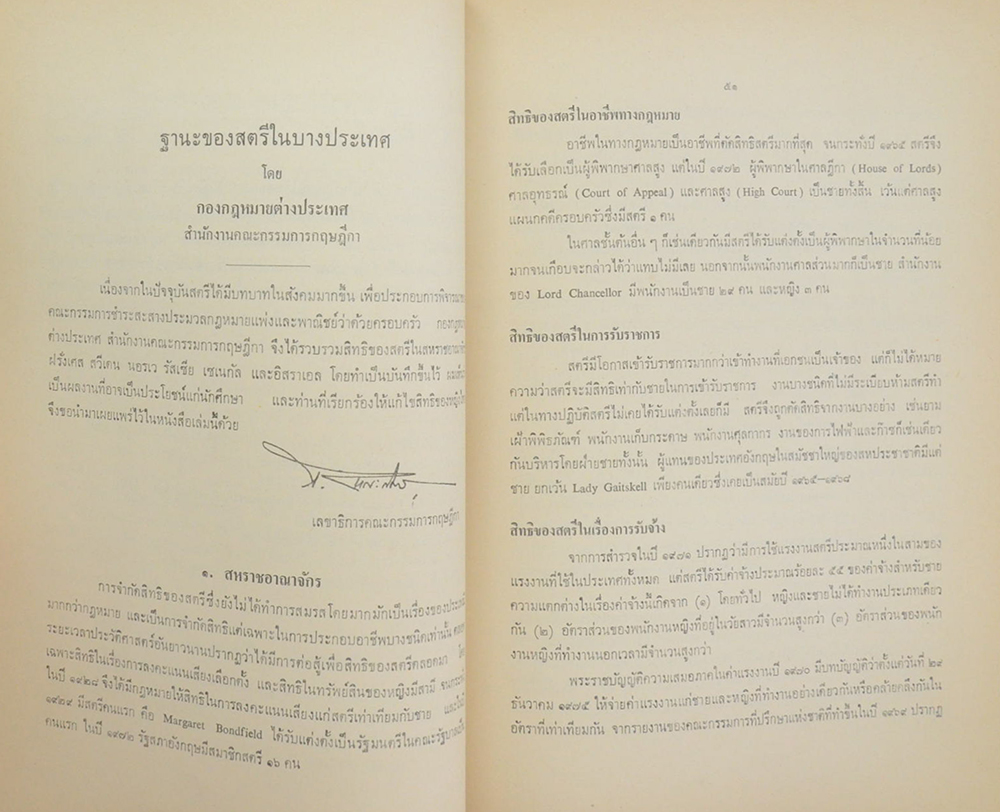 ฐานะของสตรีในบางประเทศ
โดย
กองกฎหมายต่างประเทศ
สำนักงานคณะกรรมการกฤษฎีกา
เนื่องจากในปัจจุบันสตรีได้มีบทบาทในสังคมมากขึ้น เพื่อประกอบการพิจารณา
คณะกรรมการชำระสะสางประมวลกฎหมายแพ่งและพาณิชย์ว่าด้วยครอบครัว
ต่างประเทศ สำนักงานคณะกรรมการกฤษฎีกา จึงได้รวบรวมสิทธิของสตรีในสหราชอาณาจักร
ฝรั่งเศส สวีเดน นอรเว รัสเซีย เซเนกัล และอิสราเอล โดยทำเป็นบันทึกขึ้นไว้
เป็นผลงานที่อาจเป็นประโยชน์แก่นักศึกษา และท่านที่เรียกร้องให้แก้ไขสิทธิของหญิง
จึงขอนำมาเผยแพร่ไว้ในหนังสือเล่มนี้ด้วย
เลขาธิการคณะกรรมการกฤษฎีกา
๑. สหราชอาณาจักร
การจำกัดสิทธิของสตรีซึ่งยังไม่ได้ทำการสมรสโดยมากมักเป็นเรื่องของ
มากกว่ากฎหมาย และเป็นการจำกัดสิทธิแต่เฉพาะในการประกอบอาชีพบางชนิดเท่านั้น
ระยะเวลาประวัติศาสตร์อันยาวนานปรากฏว่าได้มีการต่อสู้เพื่อสิทธิของสตรีตลอดมา
เฉพาะสิทธิในเรื่องการลงคะแนนเสียงเลือกตั้ง และสิทธิในทรัพย์สินของหญิงมีสามี
ในปี ๑๙๒๘ จึงได้มีกฎหมายให้สิทธิในการลงคะแนนเสียงแก่สตรีเท่าเทียมกับชาย
๑๙๒๙ มีสตรีคนแรก คือ Margaret Bondfield ได้รับแต่งตั้งเป็นรัฐมนตรีในคณะรัฐบาล
คนแรก ในปี ๑๙๗๒ รัฐสภาอังกฤษมีสมาชิกสตรี ๑๖ คน
๕๑
สิทธิของสตรีในอาชีพทางกฎหมาย
อาชีพในทางกฎหมายเป็นอาชีพที่คัดสิทธิสตรีมากที่สุด จนกระทั่งปี ๑๙๖๕ สตรีจึง
ได้รับเลือกเป็นผู้พิพากษาศาลสูง แต่ในปี ๑๙๗๒ ผู้พิพากษาในศาลฎีกา (House of Lords)
ศาลอุทธรณ์ (Court of Appeal) และศาลสูง (High Court) เป็นชายทั้งสิ้น เว้นแต่ศาลสูง
แผนกคดีครอบครัวซึ่งมีสตรี ๑ คน
ในศาลชั้นต้นอื่น ๆ ก็เช่นเดียวกันมีสตรีได้รับแต่งตั้งเป็นผู้พิพากษาในจำนวนที่น้อย
มากจนเกือบจะกล่าวได้ว่าแทบไม่มีเลย นอกจากนั้นพนักงานศาลส่วนมากก็เป็นชาย สำนักงาน
ของ Lord Chancellor มีพนักงานเป็นชาย ๒๙ คน และหญิง ๓ คน
สิทธิของสตรีในการรับราชการ
สตรีมีโอกาสเข้ารับราชการมากกว่าเข้าทำงานที่เอกชนเป็นเจ้าของ แต่ก็ไม่ได้หมาย
ความว่าสตรีจะมีสิทธิเท่ากับชายในการเข้ารับราชการ งานบางชนิดที่ไม่มีระเบียบห้ามสตรีทำ
แต่ในทางปฏิบัติสตรีไม่เคยได้รับแต่งตั้งเลยก็มี สตรีจึงถูกตัดสิทธิจากงานบางอย่าง เช่นยาม
เฝ้าพิพิธภัณฑ์ พนักงานเก็บกระดาษ พนักงานศุลกากร งานของการไฟฟ้าและก๊าซก็เช่นเดียว
กันบริหารโดยฝ่ายชายทั้งนั้น ผู้แทนของประเทศอังกฤษในสมัชชาใหญ่ของสหประชาชาติมีแต่
ชาย ยกเว้น Lady Gaitskell เพียงคนเดียวซึ่งเคยเป็นสมัยปี ๑๙๖๕–๑๙๖๘
สิทธิของสตรีในเรื่องการรับจ้าง
จากการสำรวจในปี ๑๙๗๑ ปรากฏว่ามีการใช้แรงงานสตรีประมาณหนึ่งในสามของ
แรงงานที่ใช้ในประเทศทั้งหมด แต่สตรีได้รับค่าจ้างประมาณร้อยละ ๕๕ ของค่าจ้างสำหรับชาย
ความแตกต่างในเรื่องค่าจ้างนี้เกิดจาก (๑) โดยทั่วไป หญิงและชายไม่ได้ทำงานประเภทเดียว
กัน (๒) อัตราส่วนของพนักงานหญิงที่อยู่ในวัยสาวมีจำนวนสูงกว่า (๓) อัตราส่วนของพนัก
งานหญิงที่ทำงานนอกเวลามีจำนวนสูงกว่า
พระราชบัญญัติความเสมอภาคในค่าแรงงานปี ๑๙๗๐ มีบทบัญญัติว่าตั้งแต่วันที่ ๒๙
ธันวาคม ๑๙๗๕ ให้จ่ายค่าแรงงานแก่ชายและหญิงที่ทำงานอย่างเดียวกันหรือคล้ายคลึงกันใน
อัตราที่เท่าเทียมกัน จากรายงานของคณะกรรมการที่ปรึกษาแห่งชาติที่ทำขึ้นในปี ๑๙๖๙ ปรากฏ